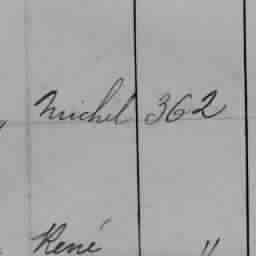 Michel 362
René "